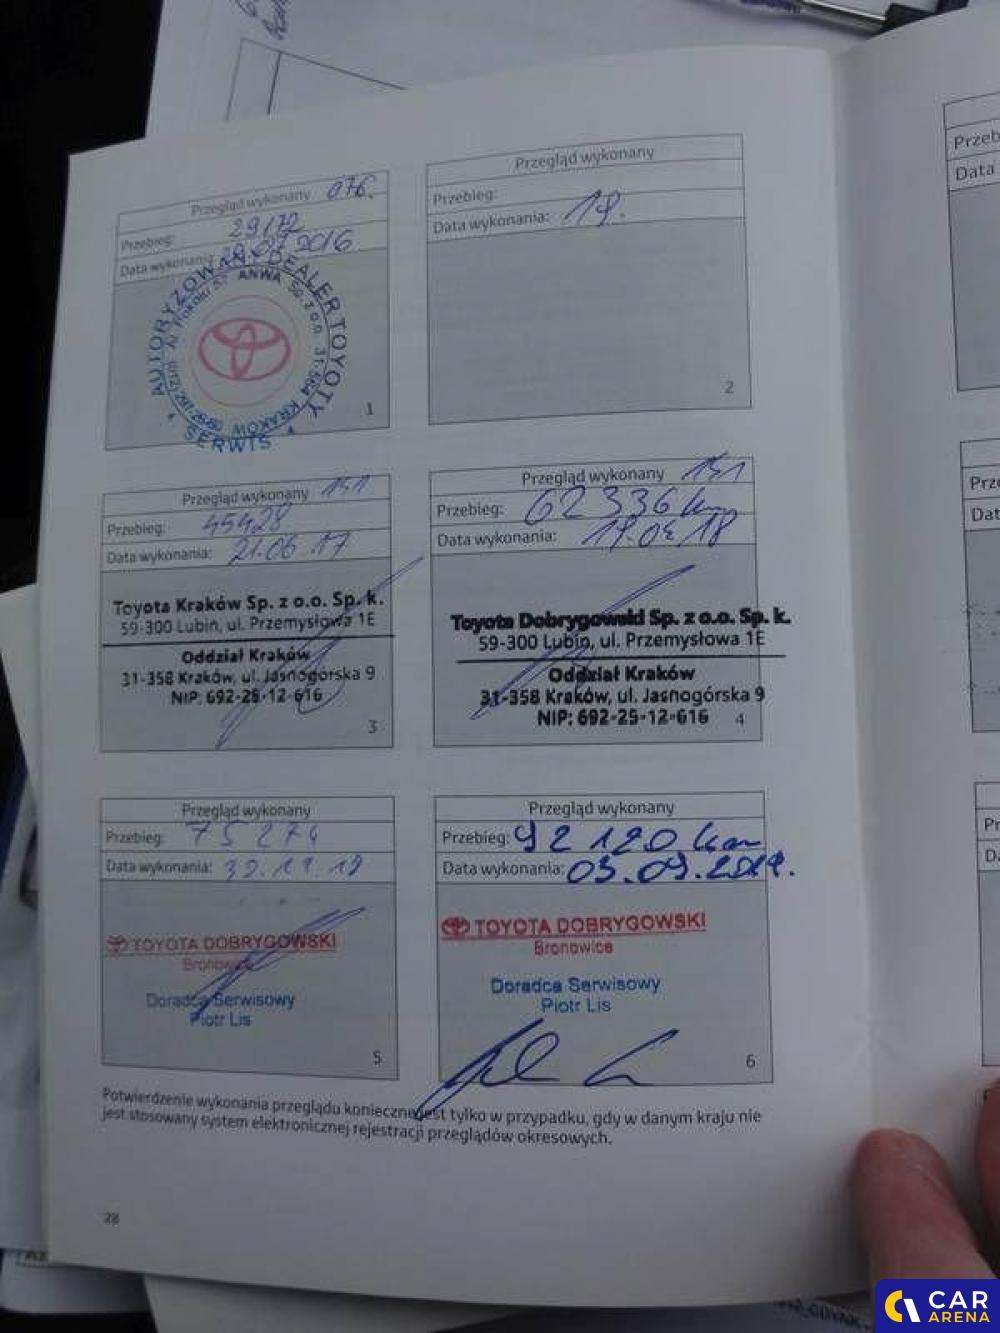 Przegląd wykonany 076.
Przebieg: 29172
Data wykonania: 2016
AUTORYZOWANY DEALER TOYOTY
SERWIS
ANWA Sp. z o.o. 31 KRAKÓW
1
Przegląd wykonany
Przebieg:
Data wykonania: 19.
2
Przegląd wykonany 151
Przebieg: 45428
Data wykonania: 21.06 17
Toyota Kraków Sp. z o.o. Sp. k.
59-300 Lubin, ul. Przemysłowa 1E
Oddział Kraków
31-358 Kraków, ul. Jasnogórska 9
NIP: 692-25-12-616
3
Przegląd wykonany 151
Przebieg: 62 336 km
Data wykonania: 18
Toyota Dobrygowski Sp. z o.o. Sp. k.
59-300 Lubin, ul. Przemysłowa 1E
Oddział Kraków
31-358 Kraków, ul. Jasnogórska 9
NIP: 692-25-12-616
4
Przegląd wykonany
Przebieg: 75 274
Data wykonania:
TOYOTA DOBRYGOWSKI
Bronowice
Doradca Serwisowy
Piotr Lis
5
Przegląd wykonany
Przebieg: 92 120 km
Data wykonania: 03.09.2019.
TOYOTA DOBRYGOWSKI
Bronowice
Doradca Serwisowy
Piotr Lis
6
Potwierdzenie wykonania przeglądu konieczne jest tylko w przypadku, gdy w danym kraju nie
jest stosowany system elektronicznej rejestracji przeglądów okresowych.
28
Przeb
Data
Prze
Dat
CAR
ARENA